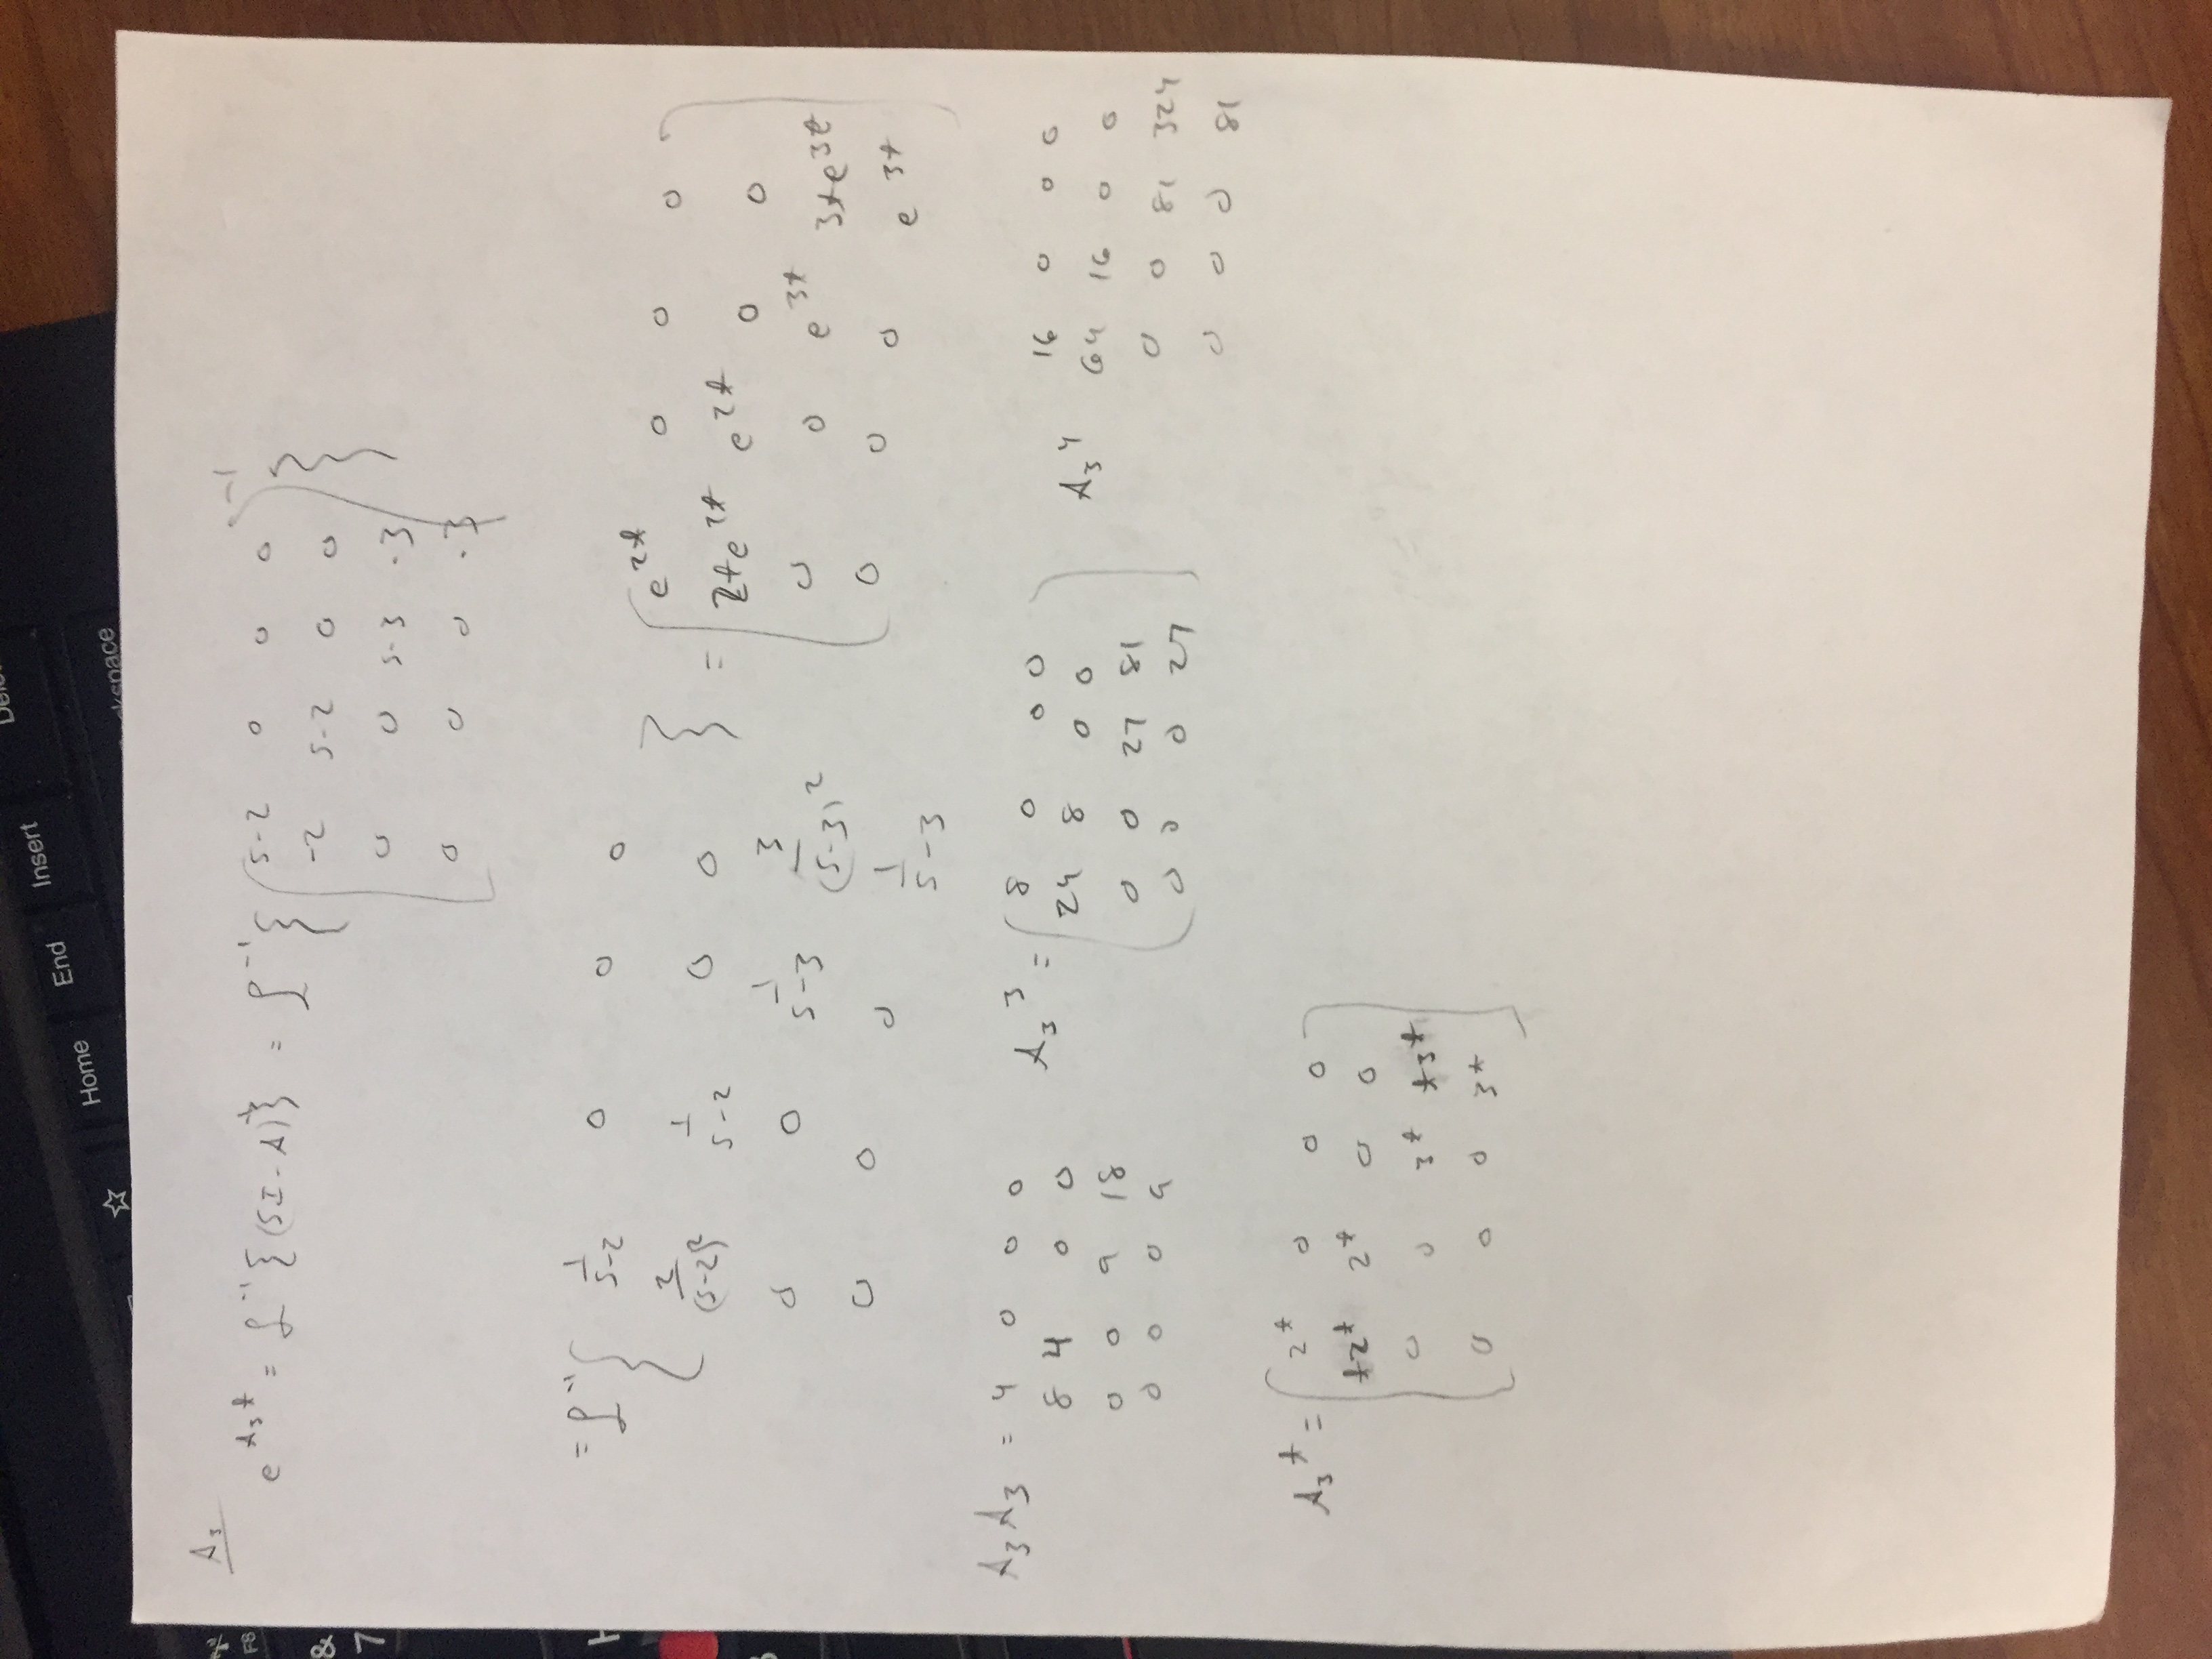 Dele
Insert
End
Home
☆
Backspace
F8
&
7
H
A₃
e^{A₃t} = ℒ⁻¹{(SI-A)⁻¹} = ℒ⁻¹{( s-2 0 0 0
-2 s-2 0 0
0 0 s-3 -3
0 0 0 -3 )⁻¹}
= ℒ⁻¹{ 1/(s-2) 0 0 0
2/(s-2)² 1/(s-2) 0 0
0 0 1/(s-3) 3/(s-3)²
0 0 0 1/(s-3) } = ( e^{2t} 0 0 0
2te^{2t} e^{2t} 0 0
0 0 e^{3t} 3te^{3t}
0 0 0 e^{3t} )
A₃A₃ = 4 0 0 0
8 4 0 0
0 0 9 18
0 0 0 9
A₃³ = ( 8 0 0 0
24 8 0 0
0 0 27 81
0 0 0 27 )
A₃⁴ 16 0 0 0
64 16 0 0
0 0 81 324
0 0 0 81
A₃^t = ( 2^t 0 0 0
t2^t 2^t 0 0
0 0 3^t t3^t
0 0 0 3^t )